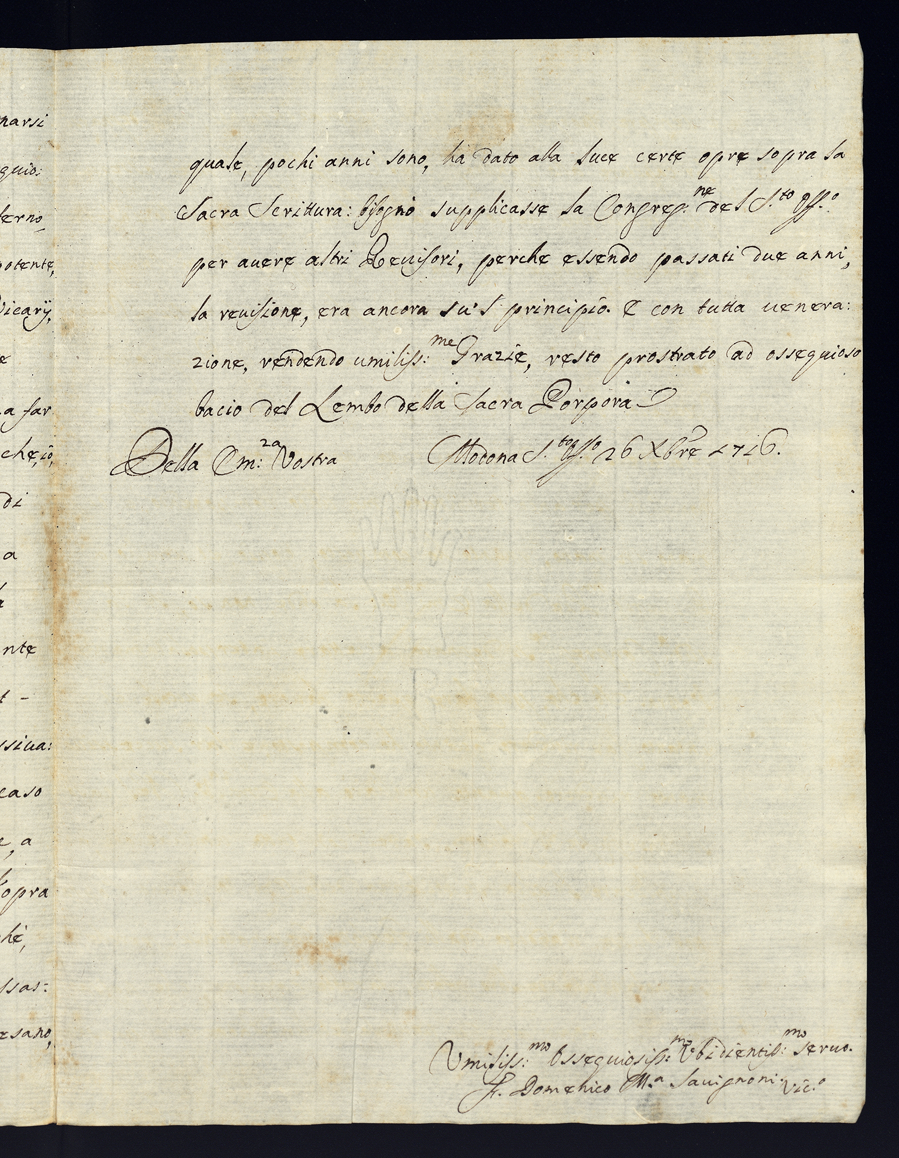 narsi
quio:
terno,
potente,
Vicarÿ,
e
a far
che, iō,
di
a
a
nte
t -
ssiua:
caso
e, a
sopra
hè,
ssas:
esano,
quale, pochi anni sono, ha dato alla luce certe opre sopra la
Sacra Scrittura: bisognò supplicasse la Congreg:ne del S.to Off.o
per auere altri Reuisori, perche essendo passati due anni,
la reuisione, era ancora su'l principio. E con tutta uenera:
zione, rendendo umiliss:me Grazie, resto prostrato ad ossequioso
bacio del Lembo della Sacra Porpora
Della Em:za Vostra Modona S.to Off.o 26 Xbre 1716.
Umiliss:mo Ossequiosiss:mo Vbidientiss:mo seruo.
F. Domenico M.a Sauignoni Vic.o